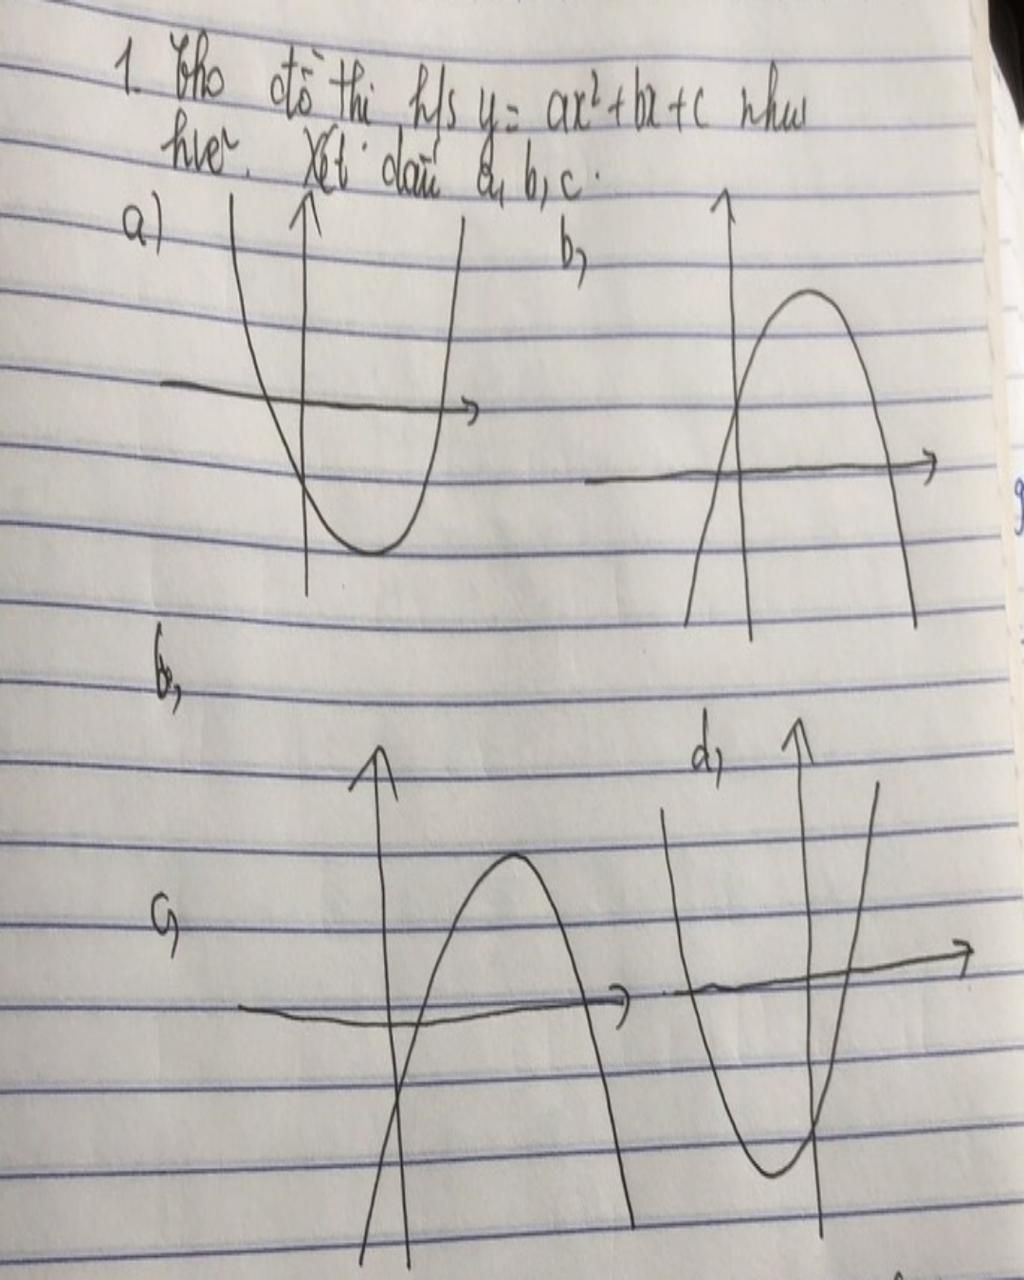 1. Cho đồ thị h/s y = ax² + bx + c như
hvẽ. Xét dấu a, b, c.
a)
b,
b,
d,
c,